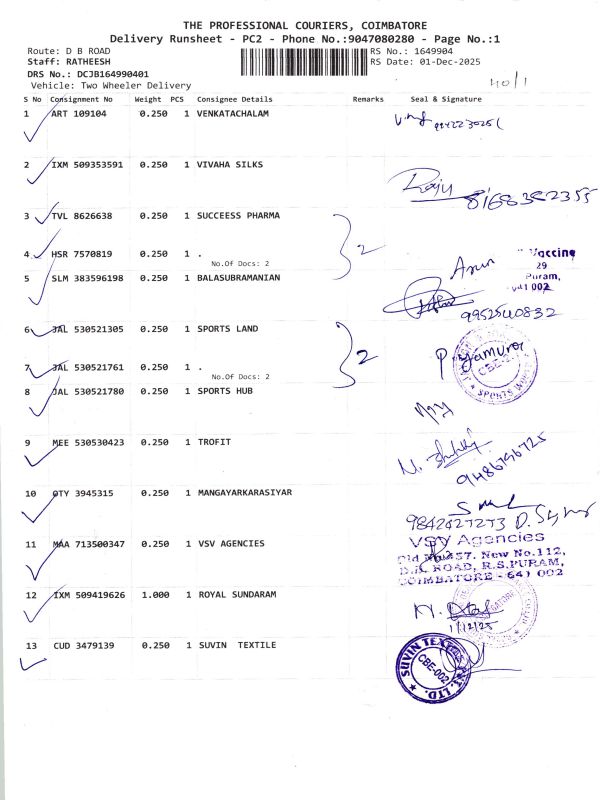 THE PROFESSIONAL COURIERS, COIMBATORE
Delivery Runsheet - PC2 - Phone No.:9047080280 - Page No.:1
Route: D B ROAD RS No.: 1649904
Staff: RATHEESH RS Date: 01-Dec-2025
DRS No.: DCJB164990401
Vehicle: Two Wheeler Delivery 40/1
S No Consignment No Weight PCS Consignee Details Remarks Seal & Signature
1 ART 109104 0.250 1 VENKATACHALAM
2 IXM 509353591 0.250 1 VIVAHA SILKS
Raju 8168382355
3 TVL 8626638 0.250 1 SUCCEESS PHARMA
2
4 HSR 7570819 0.250 1 .
No.Of Docs: 2
Arun Vaccine
29
Puram,
641 002
5 SLM 383596198 0.250 1 BALASUBRAMANIAN
9952540832
6 JAL 530521305 0.250 1 SPORTS LAND
2
7 JAL 530521761 0.250 1 .
No.Of Docs: 2
8 JAL 530521780 0.250 1 SPORTS HUB
9 MEE 530530423 0.250 1 TROFIT
9486746725
10 OTY 3945315 0.250 1 MANGAYARKARASIYAR
9842427273
11 MAA 713500347 0.250 1 VSV AGENCIES
VSV Agencies
Old No.457. New No.112,
D.B. ROAD, R.S.PURAM,
COIMBATORE - 641 002
12 IXM 509419626 1.000 1 ROYAL SUNDARAM
1/12/25
13 CUD 3479139 0.250 1 SUVIN TEXTILE
SUVIN TEXTILES PVT. LTD.
CBE-002